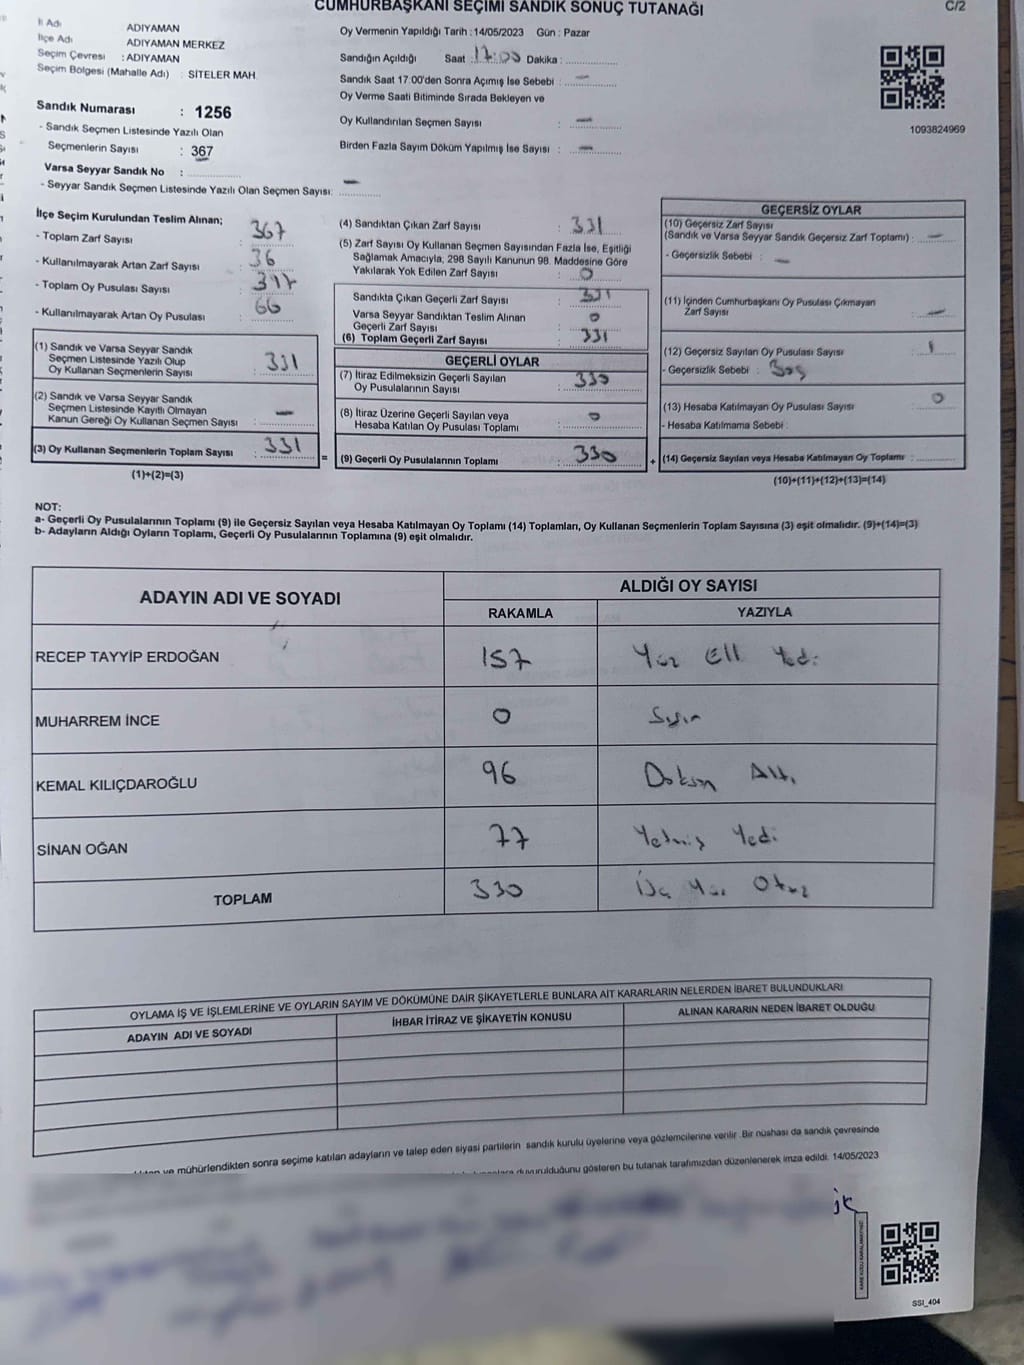 CUMHURBAŞKANI SEÇİMİ SANDIK SONUÇ TUTANAĞI
C/2
İl Adı ADIYAMAN
İlçe Adı ADIYAMAN MERKEZ
Seçim Çevresi : ADIYAMAN
Seçim Bölgesi (Mahalle Adı) : SİTELER MAH.
Sandık Numarası : 1256
- Sandık Seçmen Listesinde Yazılı Olan
Seçmenlerin Sayısı : 367
Varsa Seyyar Sandık No :
- Seyyar Sandık Seçmen Listesinde Yazılı Olan Seçmen Sayısı: —
Oy Vermenin Yapıldığı Tarih : 14/05/2023 Gün : Pazar
Sandığın Açıldığı Saat : 17:00 Dakika :
Sandık Saat 17:00'den Sonra Açımış İse Sebebi : —
Oy Verme Saati Bitiminde Sırada Bekleyen ve
Oy Kullandırılan Seçmen Sayısı : —
Birden Fazla Sayım Döküm Yapılmış İse Sayısı : —
1093824969
İlçe Seçim Kurulundan Teslim Alınan;
- Toplam Zarf Sayısı : 367
- Kullanılmayarak Artan Zarf Sayısı : 36
- Toplam Oy Pusulası Sayısı :
- Kullanılmayarak Artan Oy Pusulası : 66
(1) Sandık ve Varsa Seyyar Sandık
Seçmen Listesinde Yazılı Olup
Oy Kullanan Seçmenlerin Sayısı : 331
(2) Sandık ve Varsa Seyyar Sandık
Seçmen Listesinde Kayıtlı Olmayan
Kanun Gereği Oy Kullanan Seçmen Sayısı : —
(3) Oy Kullanan Seçmenlerin Toplam Sayısı : 331
(1)+(2)=(3)
(4) Sandıktan Çıkan Zarf Sayısı : 331
(5) Zarf Sayısı Oy Kullanan Seçmen Sayısından Fazla İse, Eşitliği
Sağlamak Amacıyla; 298 Sayılı Kanunun 98. Maddesine Göre
Yakılarak Yok Edilen Zarf Sayısı : 0
Sandıkta Çıkan Geçerli Zarf Sayısı : 331
Varsa Seyyar Sandıktan Teslim Alınan
Geçerli Zarf Sayısı : 0
(6) Toplam Geçerli Zarf Sayısı : 331
GEÇERLİ OYLAR
(7) İtiraz Edilmeksizin Geçerli Sayılan
Oy Pusulalarının Sayısı : 330
(8) İtiraz Üzerine Geçerli Sayılan veya
Hesaba Katılan Oy Pusulası Toplamı : 0
= (9) Geçerli Oy Pusulalarının Toplamı : 330 +
GEÇERSİZ OYLAR
(10) Geçersiz Zarf Sayısı
(Sandık ve Varsa Seyyar Sandık Geçersiz Zarf Toplamı) : —
- Geçersizlik Sebebi : —
(11) İçinden Cumhurbaşkanı Oy Pusulası Çıkmayan
Zarf Sayısı : —
(12) Geçersiz Sayılan Oy Pusulası Sayısı : 1
- Geçersizlik Sebebi : Boş
(13) Hesaba Katılmayan Oy Pusulası Sayısı : 0
- Hesaba Katılmama Sebebi :
(14) Geçersiz Sayılan veya Hesaba Katılmayan Oy Toplamı :
(10)+(11)+(12)+(13)=(14)
NOT:
a- Geçerli Oy Pusulalarının Toplamı (9) ile Geçersiz Sayılan veya Hesaba Katılmayan Oy Toplamı (14) Toplamları, Oy Kullanan Seçmenlerin Toplam Sayısına (3) eşit olmalıdır. (9)+(14)=(3)
b- Adayların Aldığı Oyların Toplamı, Geçerli Oy Pusulalarının Toplamına (9) eşit olmalıdır.
ADAYIN ADI VE SOYADI ALDIĞI OY SAYISI
RAKAMLA YAZIYLA
RECEP TAYYİP ERDOĞAN 157 Yüz Elli Yedi
MUHARREM İNCE 0 Sıfır
KEMAL KILIÇDAROĞLU 96 Doksan Altı
SİNAN OĞAN 77 Yetmiş Yedi
TOPLAM 330 Üç Yüz Otuz
OYLAMA İŞ VE İŞLEMLERİNE VE OYLARIN SAYIM VE DÖKÜMÜNE DAİR ŞİKAYETLERLE BUNLARA AİT KARARLARIN NELERDEN İBARET BULUNDUKLARI
ADAYIN ADI VE SOYADI İHBAR İTİRAZ VE ŞİKAYETİN KONUSU ALINAN KARARIN NEDEN İBARET OLDUĞU
ve mühürlendikten sonra seçime katılan adayların ve talep eden siyasi partilerin sandık kurulu üyelerine veya gözlemcilerine verilir .Bir nüshası da sandık çevresinde
duyurulduğunu gösteren bu tutanak tarafımızdan düzenlenerek imza edildi. 14/05/2023
SSI_404